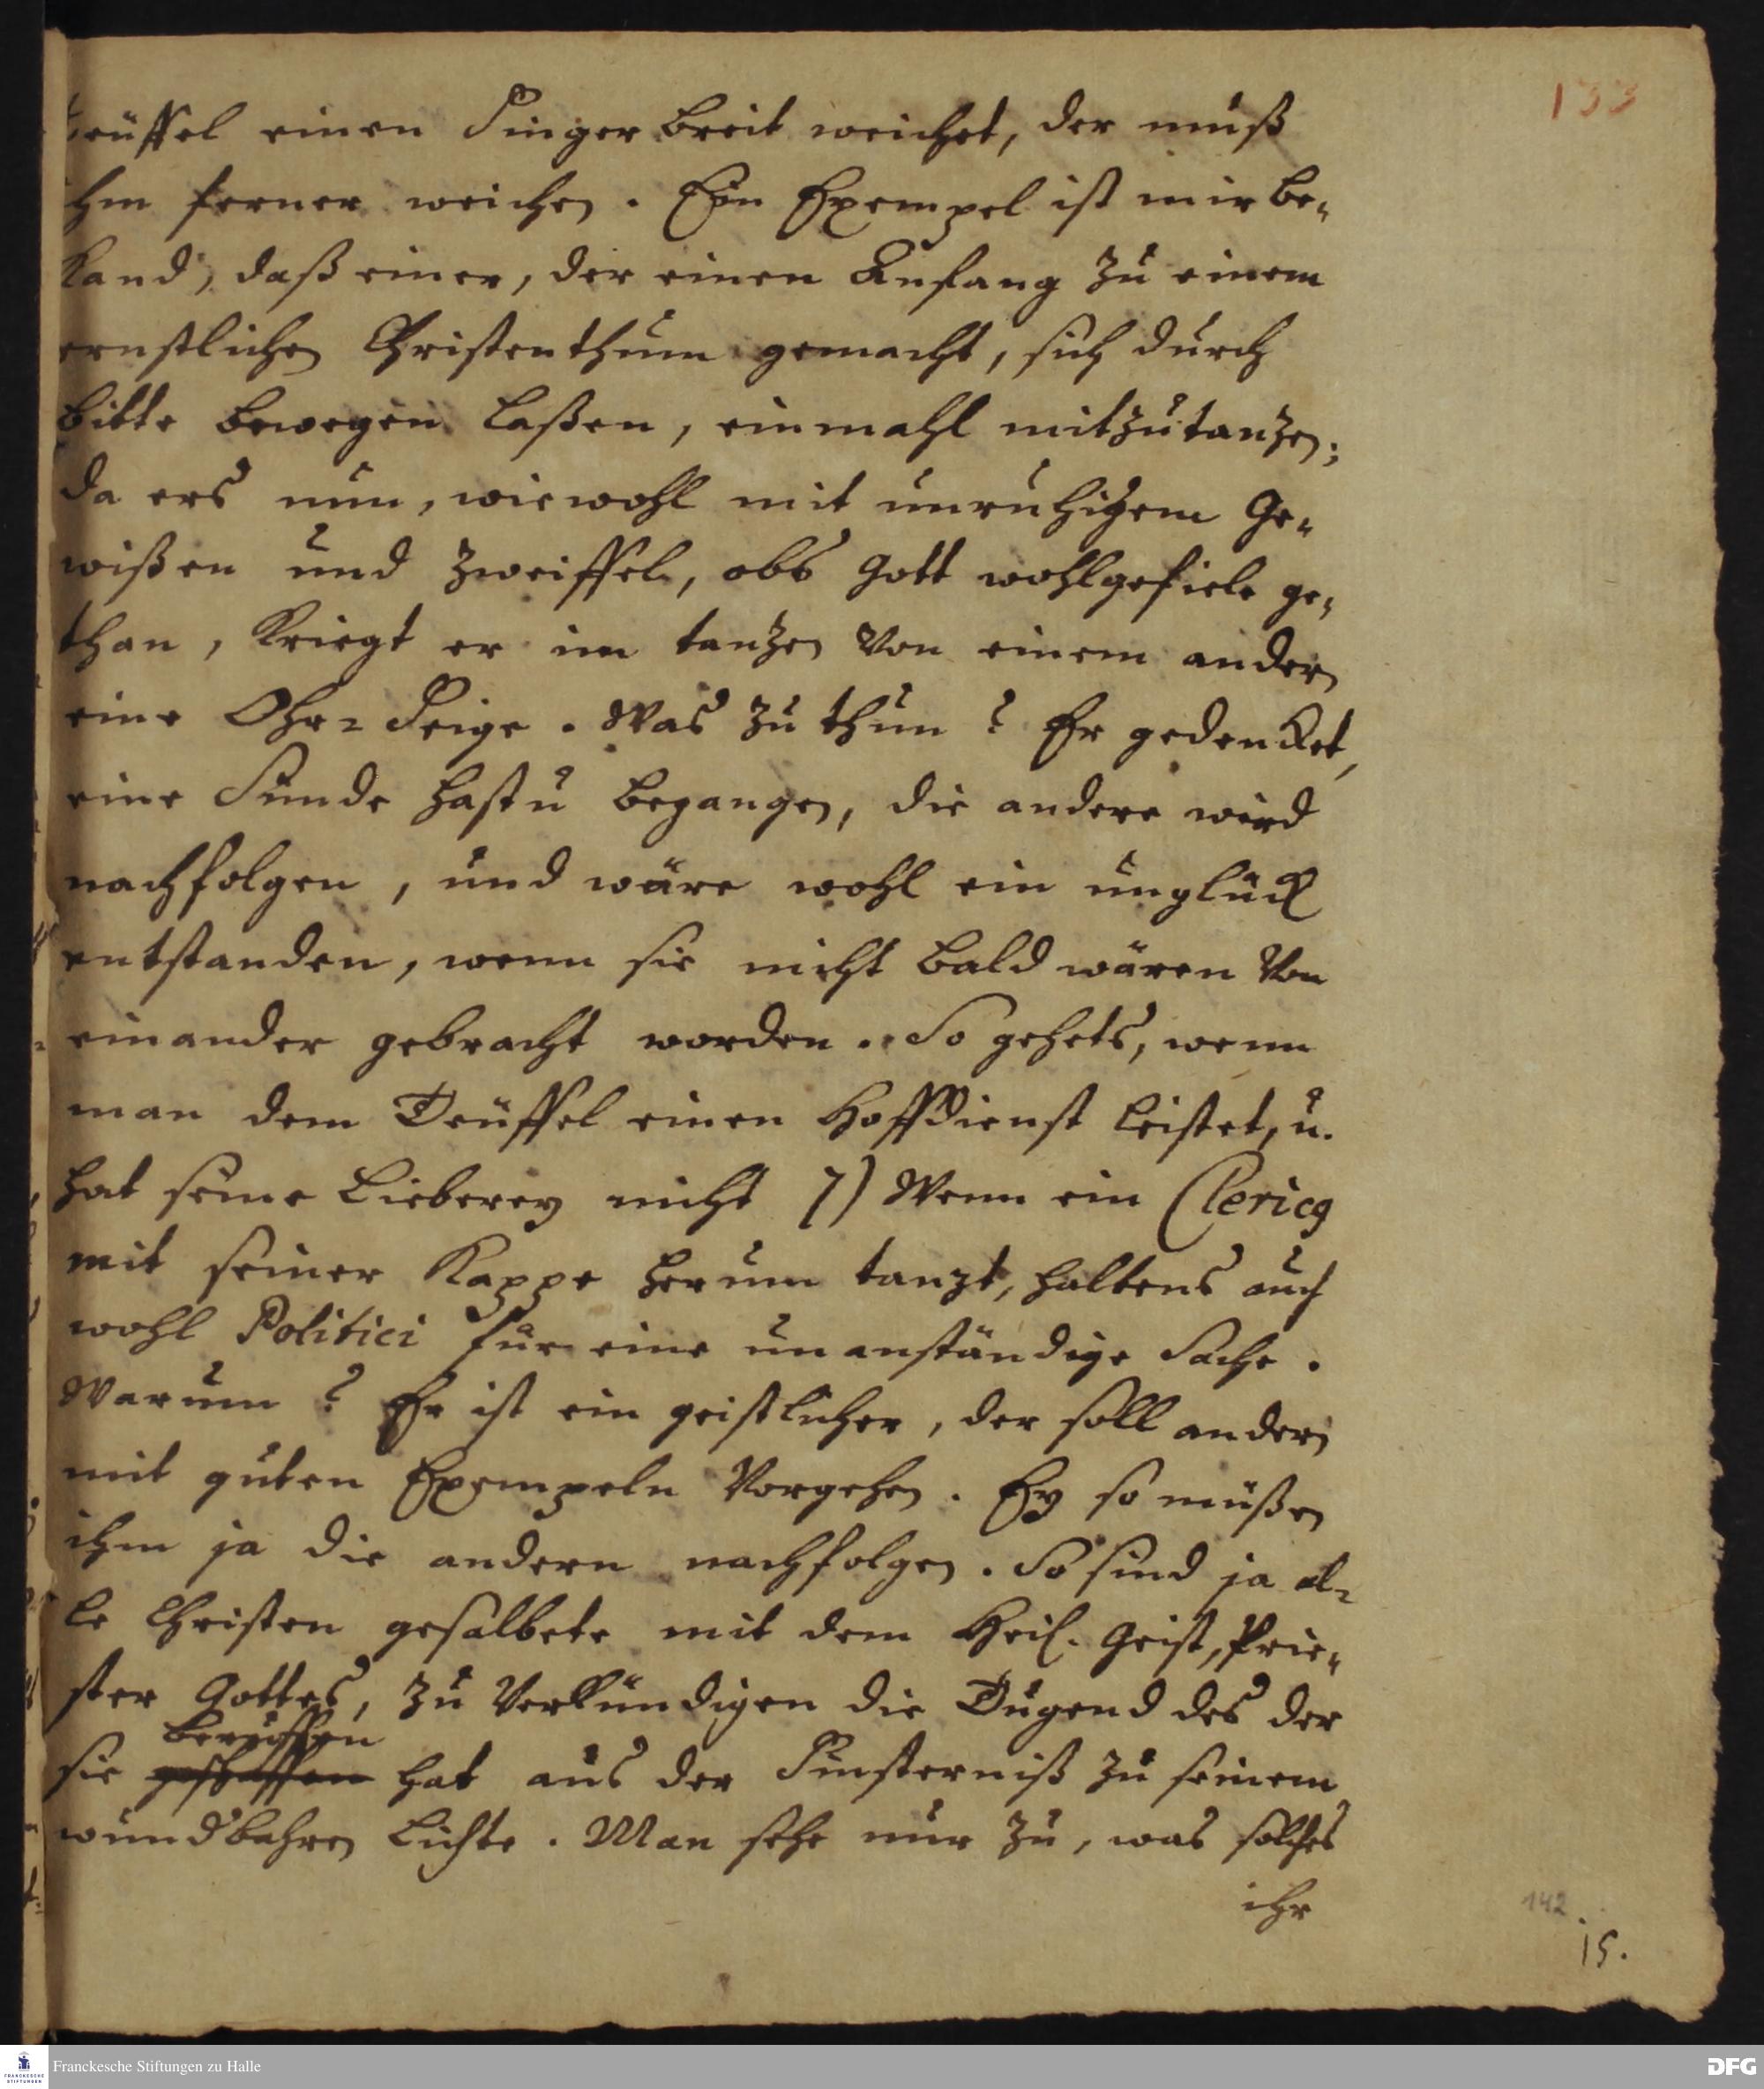 133
Teüffel einen Finger breit weichet, der muß
ihm ferner weichen. Ein Exempel ist mir be-
kand, daß einer, der einen Anfang zu einem
ernstlichen Christenthum gemacht, sich durch
bitte bewegen laßen, einmahl mitzutanzen;
da ers nun, wiewohl mit unruhigem Ge-
wißen und Zweiffel, obs Gott wohlgefiele ge-
than, kriegt er im tanzen von einem andern
eine Ohr-Feige. Was zu thun? Er gedencket,
eine Sünde hastu begangen, die andere wird
nachfolgen, und wäre wohl ein unglück
entstanden, wenn sie nicht bald wären von
einander gebracht worden. So gehets, wenn
man dem Teüffel einen Hoffdienst leistet, u.
hat seine Lieberey nicht 7) Wenn ein Clericus
mit seiner Kappe herum tanzt, haltens auch
wohl Politici für eine unanständige Sache.
Warum? Er ist ein geistlicher, der soll andern
mit guten Exempeln vorgehen. Ey so müßen
ihm ja die andern nachfolgen. So sind ja al-
le Christen gesalbete mit dem Heil. Geist, Prie-
ster Gottes, zu verkündigen die Tugend des der
beruffen
sie geschaffen hat aus der Finsterniß zu seinem
wundbahren Lichte. Man sehe nur zu, was solches
ihr
142
15.
Franckesche Stiftungen zu Halle
FRANCKESCHE STIFTUNGEN
DFG